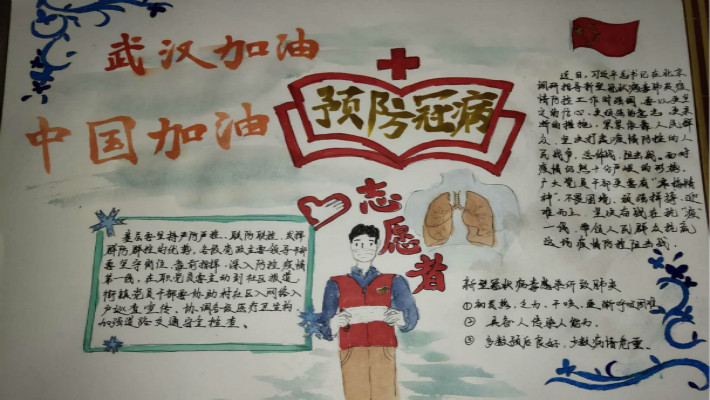 武汉加油
中国加油
预防冠病
志愿者
近日，习近平总书记在北京
调研指导新型冠状病毒肺炎疫
情防控工作时强调，要以更坚
定的信心、更顽强的意志、更果
断的措施，紧紧依靠人民群
众，坚决打赢疫情防控的人
民战争、总体战、阻击战。面对
疫情仍然十分严峻的形势，
广大党员干部更要有
神，不畏困境，敢锋
难而上，坚决奋战在抗"疫"
一线，带领人民群众打赢
这场疫情防控阻击战。
基层要坚持严防严控、联防联控，发挥
群防群控的优势，各级党政主要领导干部
要坚守岗位、靠前指挥，深入防控疫情
第一线，在职党员要主动到社区报道
街镇党员干部要协助村社区入网格入
户巡查宣传，协调各级医疗卫生机构
加强道路交通安全检查。
新型冠状病毒感染所致肺炎
①初发热、乏力、干咳，逐渐呼吸困难
② 具备人传染人能力。
③ 多数预后良好，少数病情危重。